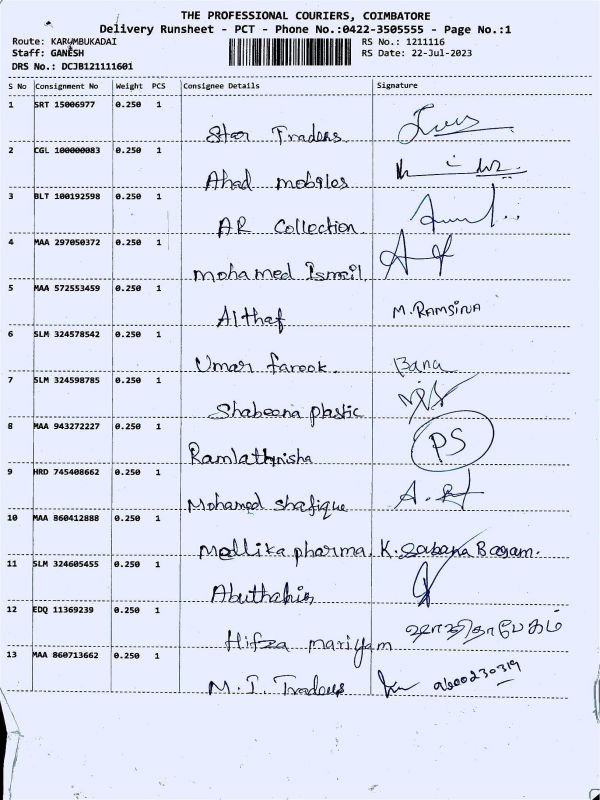 THE PROFESSIONAL COURIERS, COIMBATORE
Delivery Runsheet - PCT - Phone No.:0422-3505555 - Page No.:1
Route: KARUMBUKADAI
RS No.: 1211116
Staff: GANESH
RS Date: 22-Jul-2023
DRS No.: DCJB121111601
S No Consignment No Weight PCS Consignee Details Signature
1 SRT 15006977 0.250 1
Star Traders
2 CGL 100000083 0.250 1
Ahad mobiles
3 BLT 100192598 0.250 1
AR Collection
4 MAA 297050372 0.250 1
mohamed Ismail
5 MAA 572553459 0.250 1
Althaf M. RAMSINA
6 SLM 324578542 0.250 1
Umar farook. Bana
7 SLM 324598785 0.250 1
Shabeena plastic
8 MAA 943272227 0.250 1
Ramlathnisha PS
9 HRD 745408662 0.250 1
Mohamed shafique
10 MAA 860412888 0.250 1
Mallika pharma K. Sabana Bagam.
11 SLM 324605455 0.250 1
Abuthahir
12 EDQ 11369239 0.250 1
Hifza mariyam
13 MAA 860713662 0.250 1
M. I. Traders 9600230319